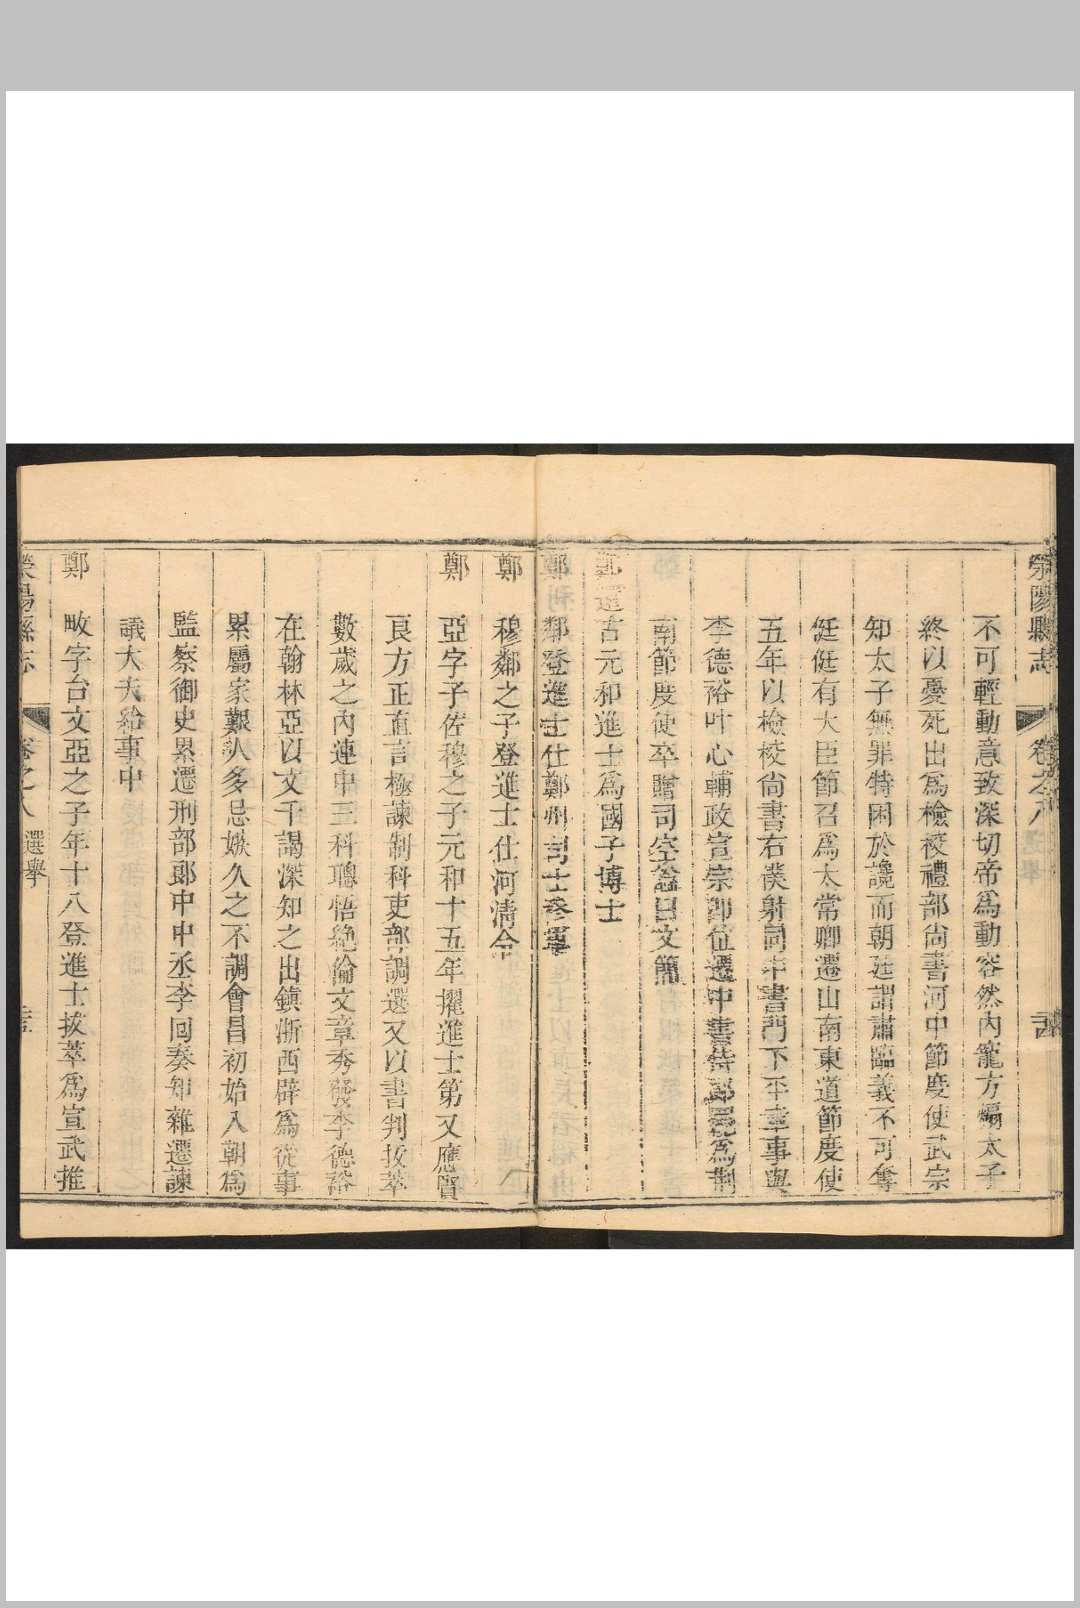 滎陽縣志 卷之八
不可輕動意致深切帝爲動容然內寵方煽太子
終以憂死出爲檢校禮部尚書河中節度使武宗
知太子無罪特困於讒而朝廷謂肅臨義不可奪
侹侹有大臣節召爲太常卿遷山南東道節度使
五年以檢校尚書右僕射同中書門下平章事與
李德裕叶心輔政宣宗卽位遷中書侍郎罷爲荆
南節度使卒贈司空謚曰文簡
鄭還古元和進士爲國子博士
鄭鄰登進士仕鄭州司士參軍
鄭 穆鄰之子登進士仕河淸令
鄭 亞字子佐穆之子元和十五年擢進士第又應賢
良方正直言極諫制科吏部調選又以書判拔萃
數歲之內連中三科聰悟絶倫文章秀發李德裕
在翰林亞以文干謁深知之出鎭浙西辟爲從事
累屬家艱人多忌嫉久之不調會昌初始入朝爲
監察御史累遷刑部郎中中丞李回奏知雜遷諫
議大夫給事中
鄭 畋字台文亞之子年十八登進士拔萃爲宣武推
滎陽縣志 卷之八 選舉